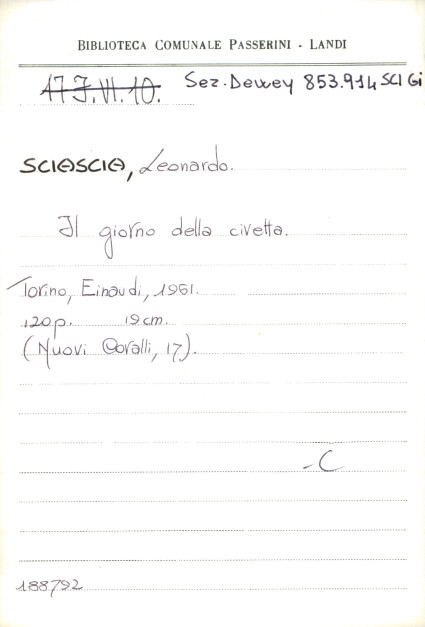 BIBLIOTECA COMUNALE PASSERINI - LANDI
17 J.VI.10. Sez. Dewey 853.914 SCI Gi
SCIASCIA, Leonardo.
Il giorno della civetta.
Torino, Einaudi, 1961.
120 p. 19 cm.
(Nuovi Coralli, 17).
-C
188792